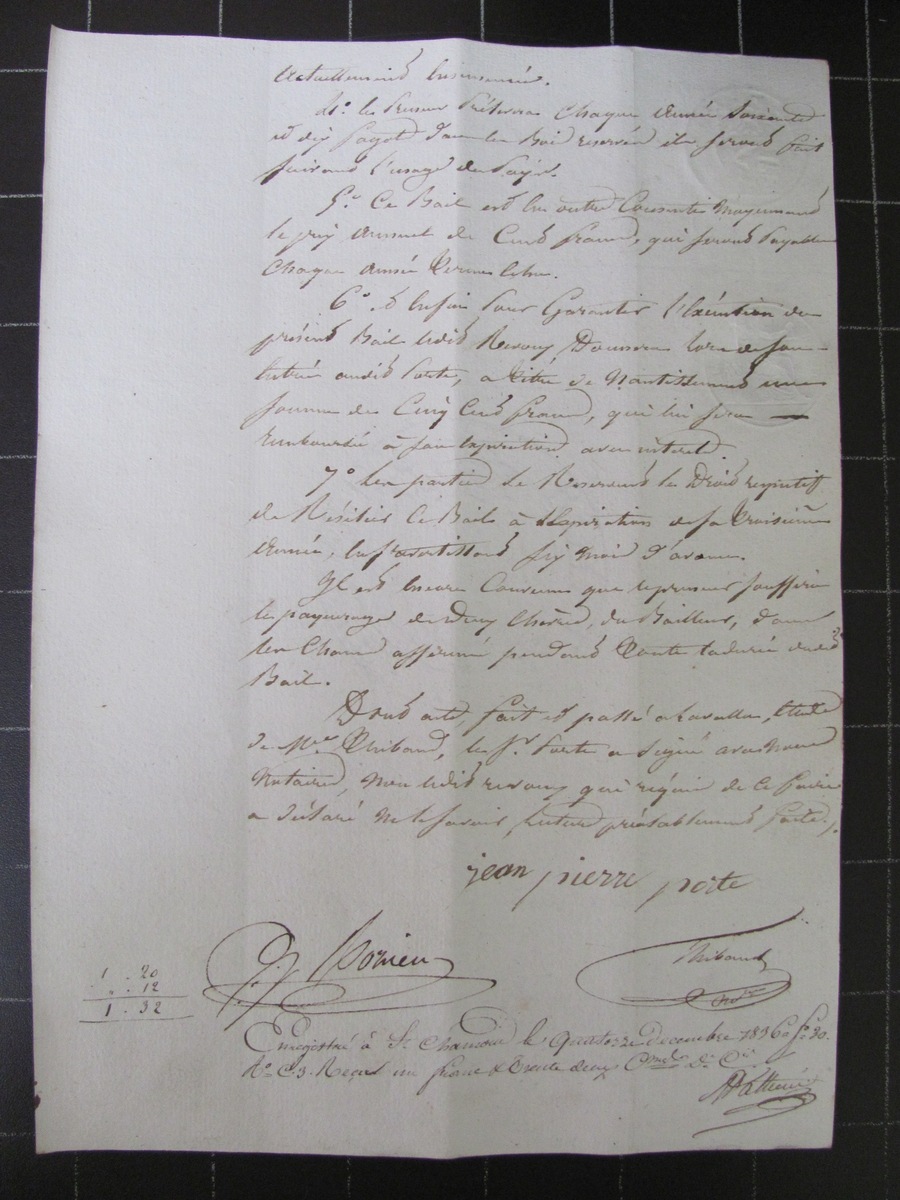 actuellement ensemencé.
4o. le preneur prélevera chaque année soixante
et dix fagots dans le Bois reservé ils seront fait
suivant l'usage du Pays.
5o. Ce Bail est en outre Consenti moyennant
le prix annuel de Cent francs, qui seront payables
chaque année Terme échu.
6o. Et enfin pour Garantir l'Exécution du
présent Bail ledit Donnera lors de son
entrée audit Porte, à titre de Nantissement une
somme de Cinq Cent francs, qui lui sera
remboursée à son expiration avec intérêts.
7o les parties se Reservent le Droit respectif
de Résilier ce Bail à l'expiration de la troisième
année, en s'avertissant six mois d'avance.
Il est encore Convenu que le preneur souffrira
le payeurage de Deux Chèvres, du Bailleur, dans
les Champs affermés pendant toute la durée dudit
Bail.
Dont acte, fait et passé à Lavalla, Etude
de Me. Thibaud, le Sr. Porte a signé avec Nous
Notaires, non ledit qui requis de ce faire
a déclaré ne le savoir, lecture préalablement faite.
jean pierre porte
Thibaud
1 . 20
. . 12
1 . 32
Enregistré à St. Chamond le quatorze decembre 1836 fo. 30.
Ro. C. 3. Reçu un franc & trente deux Cmes Dc. Cis.